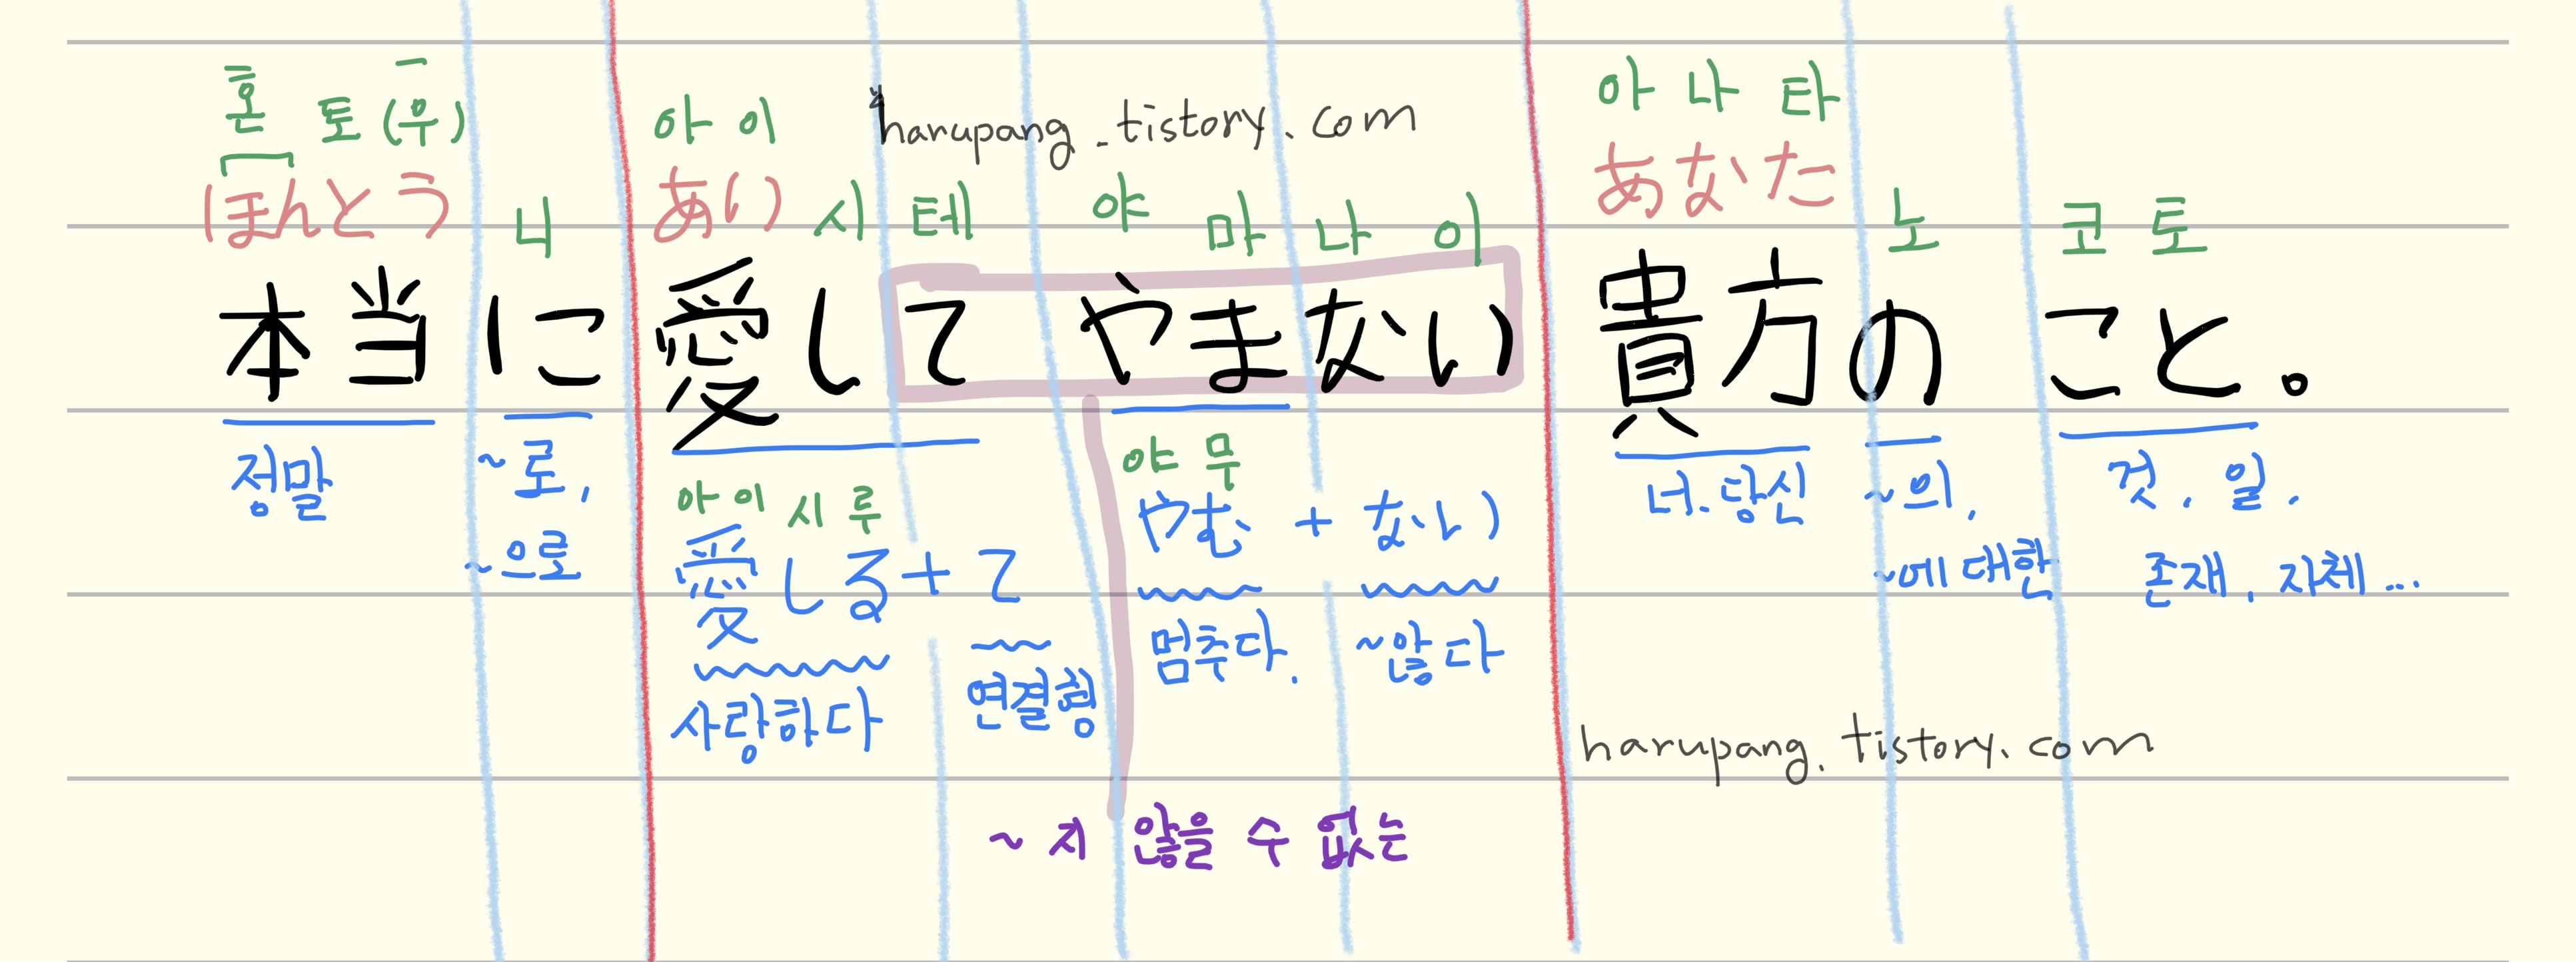 혼 토 (우)
아 이
harupang.tistory.com
아 나 타
ほんとう
니
あい
시 테
야 마 나 이
あなた
노
코 토
本当に愛してやまない貴方のこと。
정말
~로,
~으로
아 이 시 루
愛しる+て
사랑하다
연결형
야 무
やむ + ない
멈추다.
~않다
너.당신
~의,
~에 대한
것, 일,
존재, 자체...
harupang.tistory.com
~지 않을 수 없는